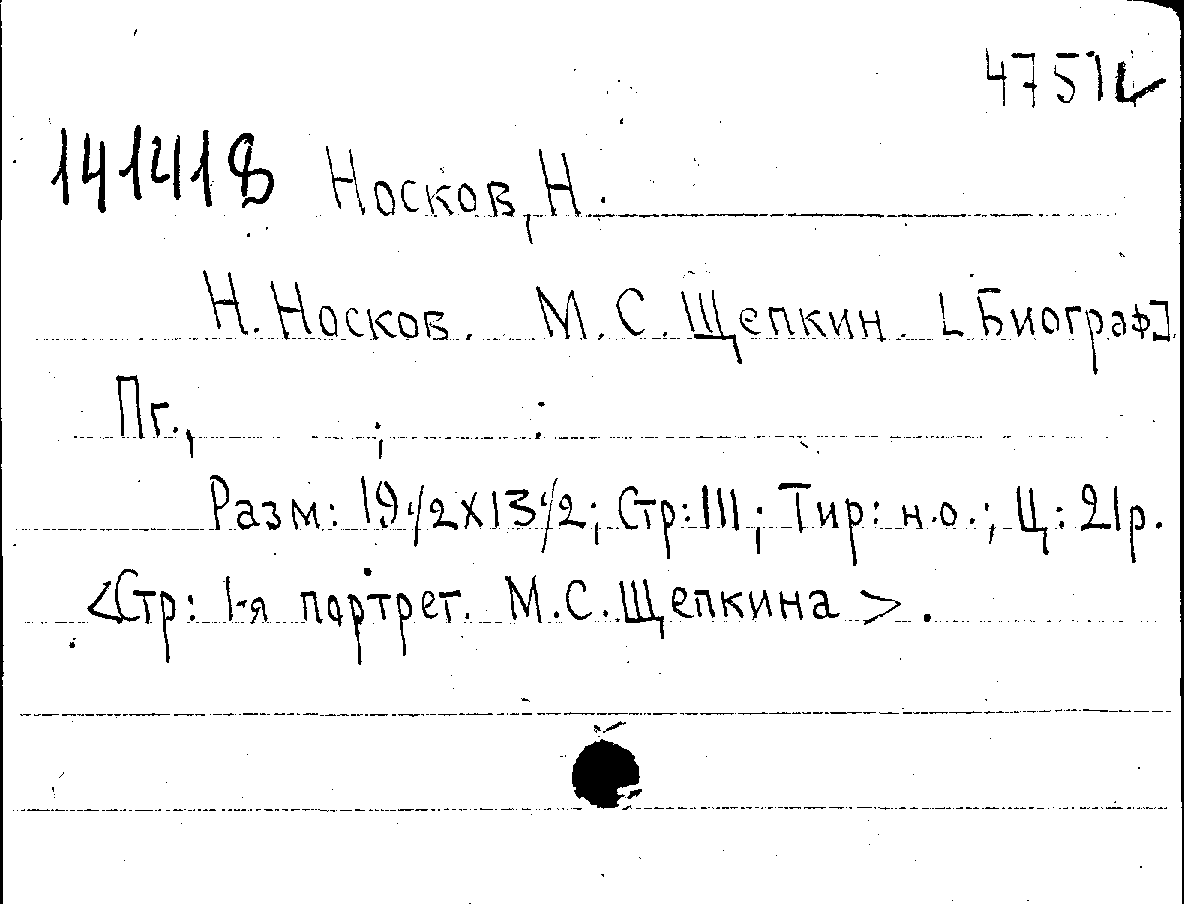 4751
141418 Носков, Н.
Н. Носков. М. С. Щепкин. [Биограф]
Пг., ; :
Разм: 19 1/2 х 13 1/2; Стр: 111; Тир: н.о.; Ц: 21р.
<Стр: 1-я портрет. М.С. Щепкина>.